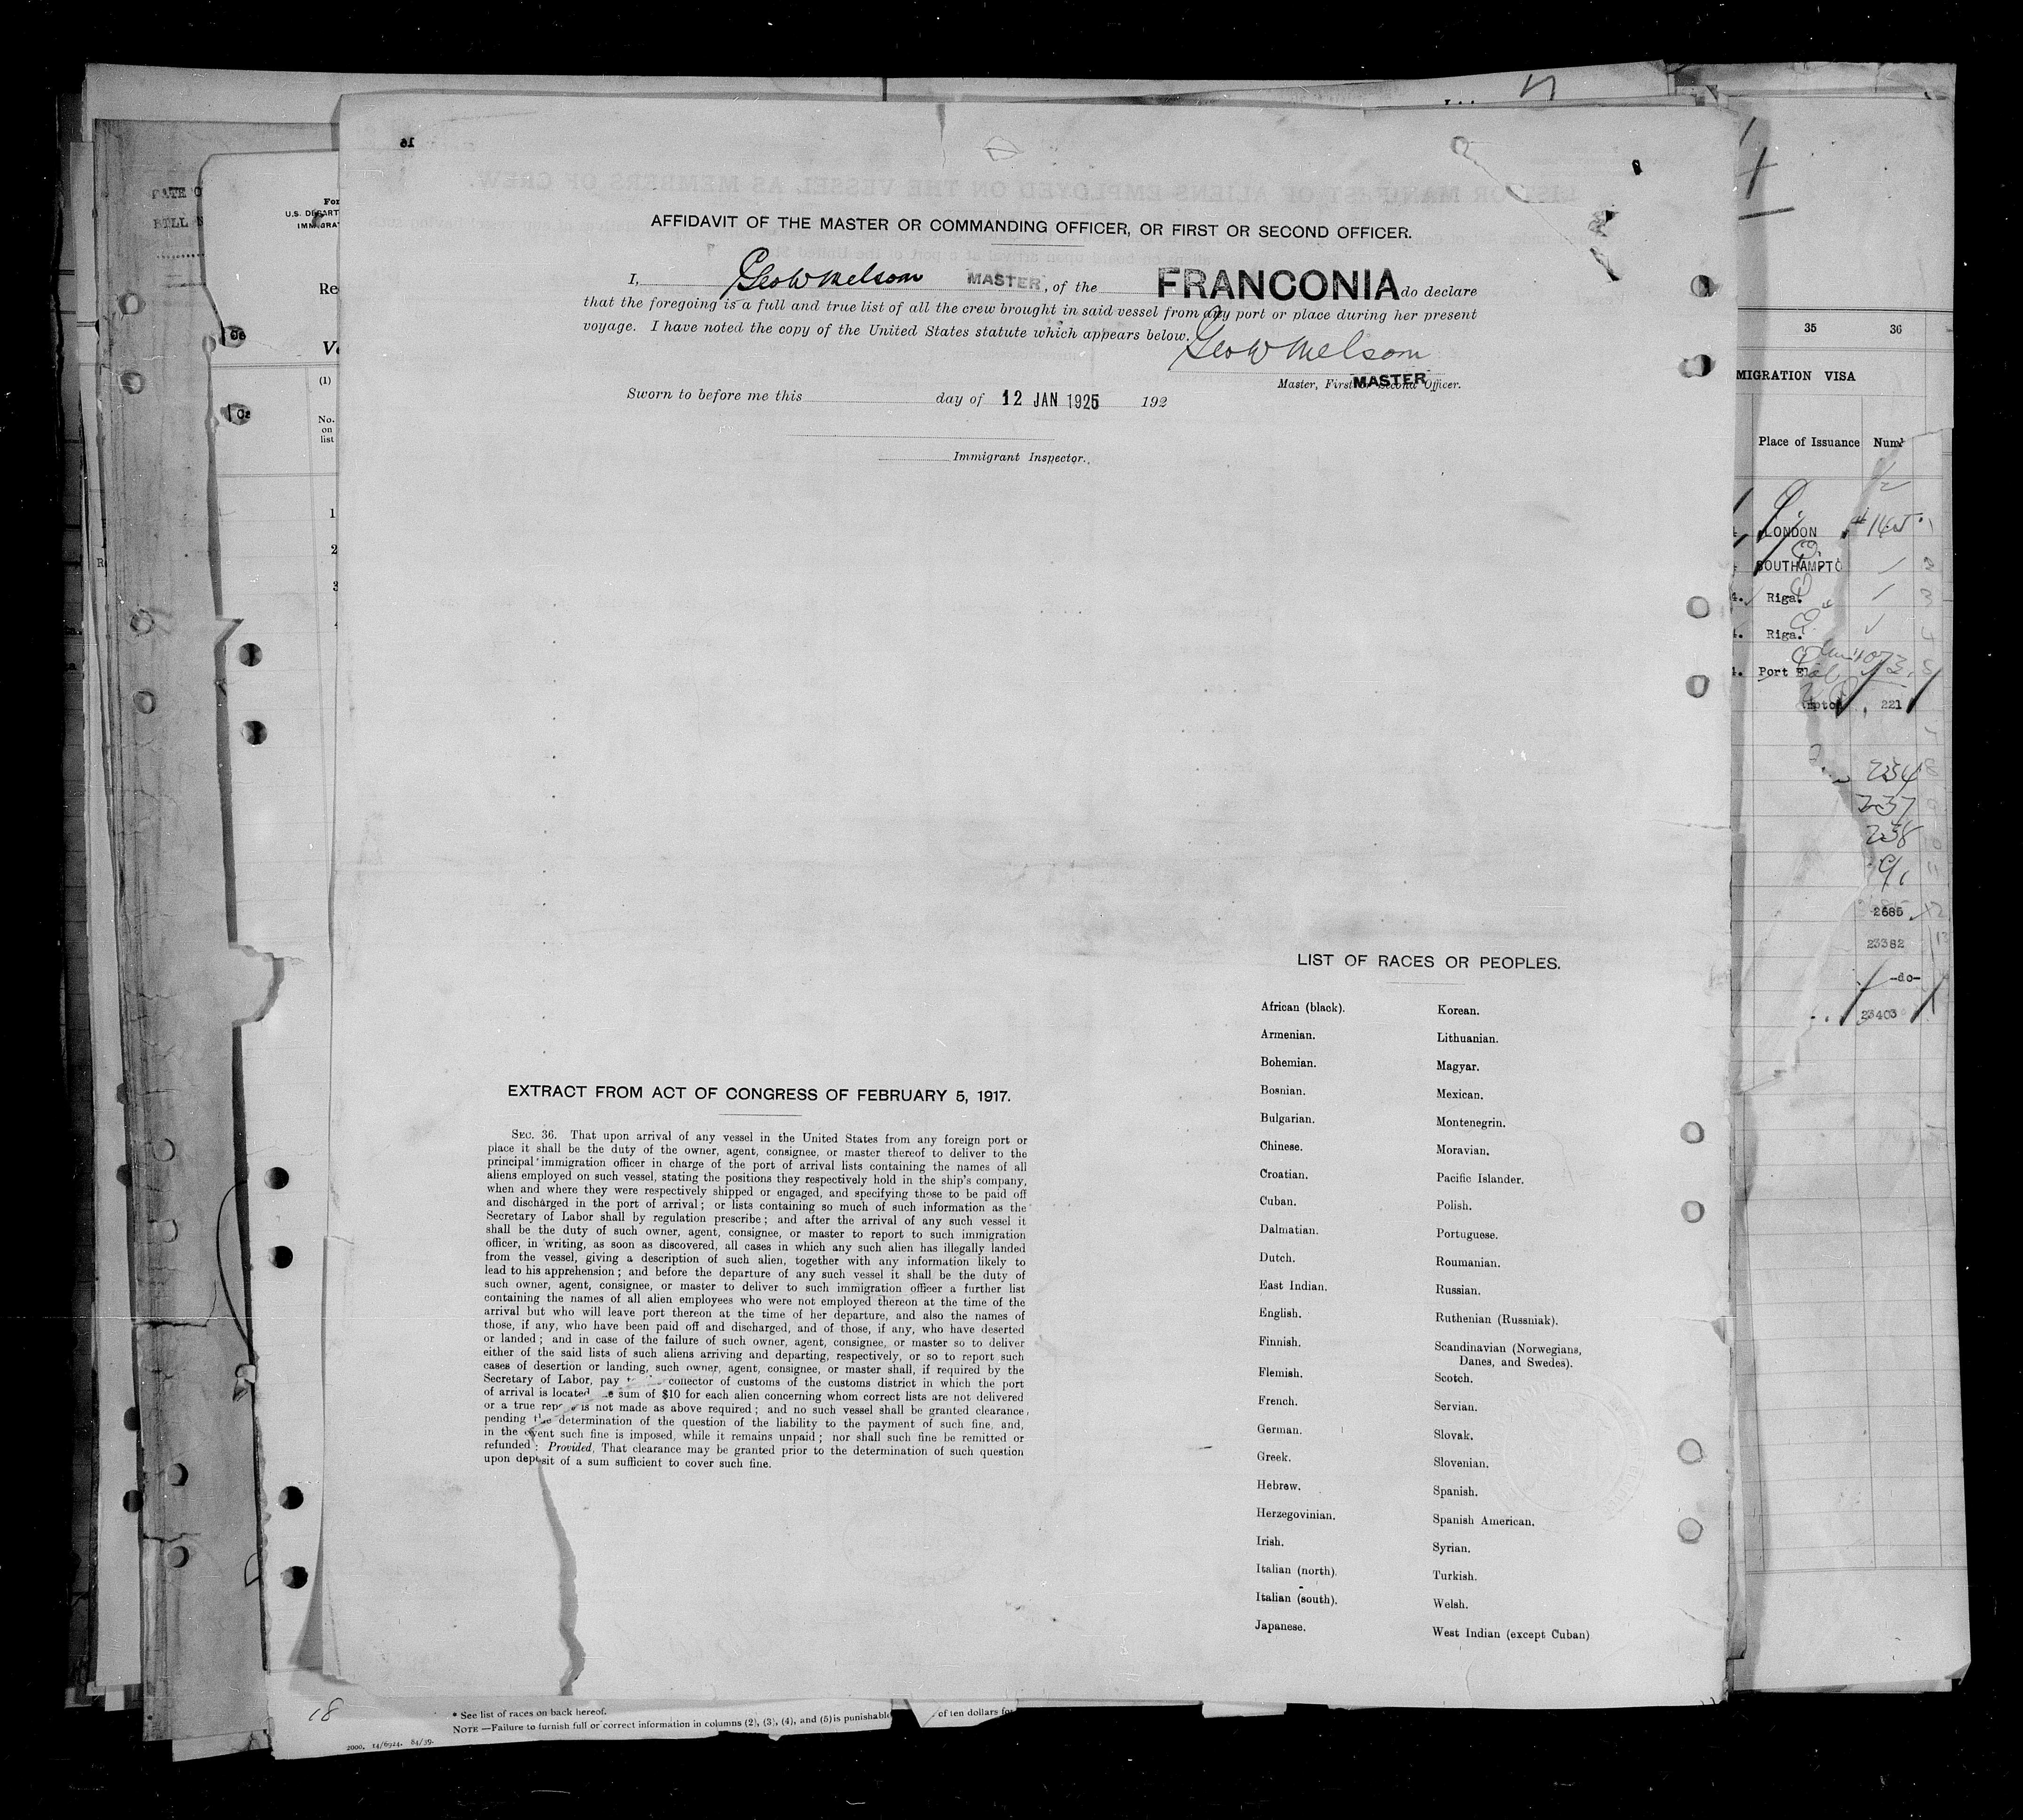 AFFIDAVIT OF THE MASTER OR COMMANDING OFFICER, OR FIRST OR SECOND OFFICER.
I, Geo W Melsom MASTER, of the FRANCONIA do declare
that the foregoing is a full and true list of all the crew brought in said vessel from any port or place during her present
voyage. I have noted the copy of the United States statute which appears below.
Geo W Melsom
Master, First or Second Officer.
MASTER
Sworn to before me this day of 12 JAN 1925 192
Immigrant Inspector.
LIST OF RACES OR PEOPLES.
African (black).
Armenian.
Bohemian.
Bosnian.
Bulgarian.
Chinese.
Croatian.
Cuban.
Dalmatian.
Dutch.
East Indian.
English.
Finnish.
Flemish.
French.
German.
Greek.
Hebrew.
Herzegovinian.
Irish.
Italian (north).
Italian (south).
Japanese.
Korean.
Lithuanian.
Magyar.
Mexican.
Montenegrin.
Moravian.
Pacific Islander.
Polish.
Portuguese.
Roumanian.
Russian.
Ruthenian (Russniak).
Scandinavian (Norwegians,
Danes, and Swedes).
Scotch.
Servian.
Slovak.
Slovenian.
Spanish.
Spanish American.
Syrian.
Turkish.
Welsh.
West Indian (except Cuban)
EXTRACT FROM ACT OF CONGRESS OF FEBRUARY 5, 1917.
SEC. 36. That upon arrival of any vessel in the United States from any foreign port or
place it shall be the duty of the owner, agent, consignee, or master thereof to deliver to the
principal immigration officer in charge of the port of arrival lists containing the names of all
aliens employed on such vessel, stating the positions they respectively hold in the ship's company,
when and where they were respectively shipped or engaged, and specifying those to be paid off
and discharged in the port of arrival; or lists containing so much of such information as the
Secretary of Labor shall by regulation prescribe; and after the arrival of any such vessel it
shall be the duty of such owner, agent, consignee, or master to report to such immigration
officer, in writing, as soon as discovered, all cases in which any such alien has illegally landed
from the vessel, giving a description of such alien, together with any information likely to
lead to his apprehension; and before the departure of any such vessel it shall be the duty of
such owner, agent, consignee, or master to deliver to such immigration officer a further list
containing the names of all alien employees who were not employed thereon at the time of the
arrival but who will leave port thereon at the time of her departure, and also the names of
those, if any, who have been paid off and discharged, and of those, if any, who have deserted
or landed; and in case of the failure of such owner, agent, consignee, or master so to deliver
either of the said lists of such aliens arriving and departing, respectively, or so to report such
cases of desertion or landing, such owner, agent, consignee, or master shall, if required by the
Secretary of Labor, pay collector of customs of the customs district in which the port
of arrival is located sum of $10 for each alien concerning whom correct lists are not delivered
or a true rep is not made as above required; and no such vessel shall be granted clearance,
pending the determination of the question of the liability to the payment of such fine, and,
in the event such fine is imposed, while it remains unpaid; nor shall such fine be remitted or
refunded: Provided, That clearance may be granted prior to the determination of such question
upon deposit of a sum sufficient to cover such fine.
35 36
MIGRATION VISA
Place of Issuance Num
LONDON
SOUTHAMPTO
Riga.
Riga.
Port El
221
234
237
238
2685
23382
-do-
23403
For
U.S. DEPART
IMMIGRA
Re
(1)
No.
on
list
1
2
3
18
* See list of races on back hereof.
NOTE —Failure to furnish full or correct information in columns (2), (3), (4), and (5) is punishable of ten dollars for
2000. 14/6924. 84/39.